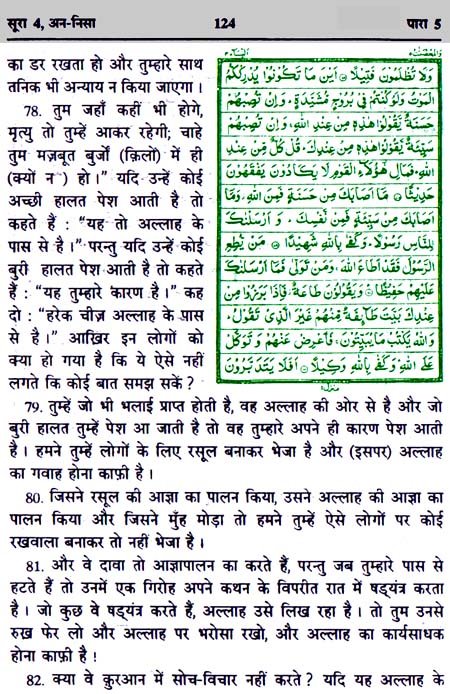 सूरा 4, अन-निसा 124 पारा 5
का डर रखता हो और तुम्हारे साथ
तनिक भी अन्याय न किया जाएगा।
78. तुम जहाँ कहीं भी होगे,
मृत्यु तो तुम्हें आकर रहेगी; चाहे
तुम मज़बूत बुर्जों (क़िलों) में ही
(क्यों न) हो।” यदि उन्हें कोई
अच्छी हालत पेश आती है तो
कहते हैं : “यह तो अल्लाह के
पास से है।” परन्तु यदि उन्हें कोई
बुरी हालत पेश आती है तो कहते
हैं : “यह तुम्हारे कारण है।” कह
दो : “हरेक चीज़ अल्लाह के पास
से है।” आख़िर इन लोगों को
क्या हो गया है कि ये ऐसे नहीं
लगते कि कोई बात समझ सकें?
وَلَا تُظْلَمُونَ فَتِيلًا ۝ اَيْنَ مَا تَكُونُوا يُدْرِكْكُّمُ
الْمَوْتُ وَلَوْ كُنْتُمْ فِي بُرُوجٍ مُّشَيَّدَةٍ ۗ وَاِنْ تُصِبْهُمْ
حَسَنَةٌ يَّقُولُوا هٰذِهٖ مِنْ عِنْدِ اللّٰهِ ۚ وَاِنْ تُصِبْهُمْ
سَيِّئَةٌ يَّقُولُوا هٰذِهٖ مِنْ عِنْدِكَ ۗ قُلْ كُلٌّ مِّنْ عِنْدِ
اللّٰهِ ۗ فَمَالِ هٰٓؤُلَاءِ الْقَوْمِ لَا يَكَادُونَ يَفْقَهُونَ
حَدِيثًا ۝ مَا اَصَابَكَ مِنْ حَسَنَةٍ فَمِنَ اللّٰهِ ۖ وَمَا
اَصَابَكَ مِنْ سَيِّئَةٍ فَمِنْ نَّفْسِكَ ۗ وَاَرْسَلْنٰكَ
لِلنَّاسِ رَسُولًا ۗ وَكَفٰى بِاللّٰهِ شَهِيدًا ۝ مَنْ يُّطِعِ
الرَّسُولَ فَقَدْ اَطَاعَ اللّٰهَ ۚ وَمَنْ تَوَلّٰى فَمَا اَرْسَلْنٰكَ
عَلَيْهِمْ حَفِيظًا ۝ وَيَقُولُونَ طَاعَةٌ ۖ فَاِذَا بَرَزُوا مِنْ
عِنْدِكَ بَيَّتَ طَائِفَةٌ مِّنْهُمْ غَيْرَ الَّذِي تَقُولُ ۖ
وَاللّٰهُ يَكْتُبُ مَا يُبَيِّتُونَ ۚ فَاَعْرِضْ عَنْهُمْ وَتَوَكَّلْ
عَلَى اللّٰهِ ۗ وَكَفٰى بِاللّٰهِ وَكِيلًا ۝ اَفَلَا يَتَدَبَّرُونَ
79. तुम्हें जो भी भलाई प्राप्त होती है, वह अल्लाह की ओर से है और जो
बुरी हालत तुम्हें पेश आ जाती है तो वह तुम्हारे अपने ही कारण पेश आती
है। हमने तुम्हें लोगों के लिए रसूल बनाकर भेजा है और (इसपर) अल्लाह
का गवाह होना काफ़ी है।
80. जिसने रसूल की आज्ञा का पालन किया, उसने अल्लाह की आज्ञा का
पालन किया और जिसने मुँह मोड़ा तो हमने तुम्हें ऐसे लोगों पर कोई
रखवाला बनाकर तो नहीं भेजा है।
81. और वे दावा तो आज्ञापालन का करते हैं, परन्तु जब तुम्हारे पास से
हटते हैं तो उनमें एक गिरोह अपने कथन के विपरीत रात में षड्यंत्र करता
है। जो कुछ वे षड्यंत्र करते हैं, अल्लाह उसे लिख रहा है। तो तुम उनसे
रुख़ फेर लो और अल्लाह पर भरोसा रखो, और अल्लाह का कार्यसाधक
होना काफ़ी है!
82. क्या वे क़ुरआन में सोच-विचार नहीं करते? यदि यह अल्लाह के